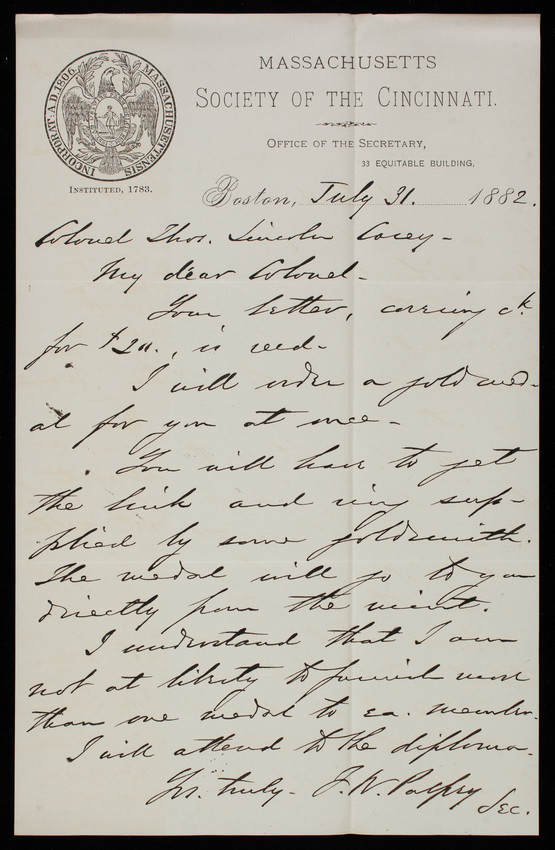 INCORPORAT. A.D. 1806. MASSACHUSETTENSIS
INSTITUTED, 1783.
MASSACHUSETTS
SOCIETY OF THE CINCINNATI.
OFFICE OF THE SECRETARY,
33 EQUITABLE BUILDING,
Boston, July 31. 1882.
Colonel Thos. Lincoln Casey-
My dear Colonel-
Your letter, covering ck
for $20., is recd-
I will order a gold med-
al for you at once-
You will have to get
the link and ring sup-
plied by some goldsmith.
The medal will go to you
directly from the mint.
I understand that I am
not at liberty to furnish more
than one medal to ea. member.
I will attend to the diploma.
Yrs. truly- J. W. Palfrey
Sec.